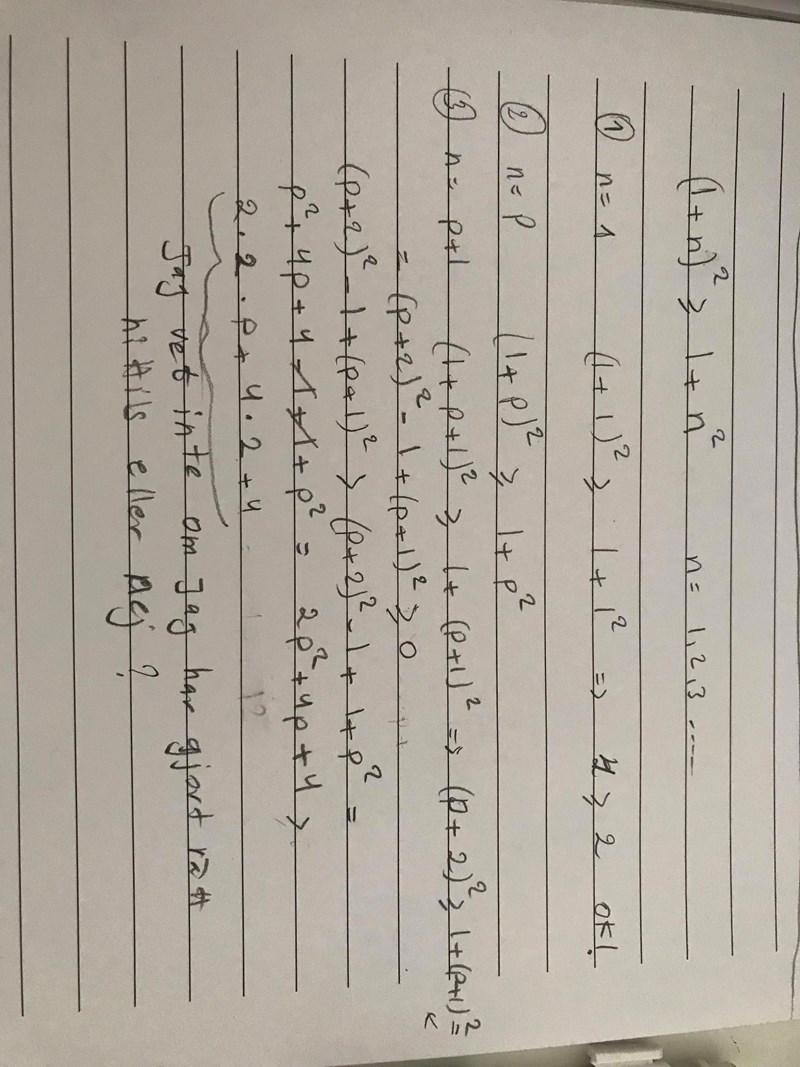 (1+n)² ≥ 1+n² n = 1,2,3 .....
① n = 1 (1+1)² ≥ 1+1² => 4 ≥ 2 ok!
② n = p (1+p)² ≥ 1+p²
③ n = p+1 (1+p+1)² ≥ 1+(p+1)² => (p+2)² ≥ 1+(p+1)² =
= (p+2)² - 1 + (p+1)² ≥ 0
(p+2)² - 1 + (p+1)² > (p+2)² - 1 + 1 + p² =
p² + 4p + 4 - 1 + 1 + p² = 2p² + 4p + 4 >
2 · 2 · p + 4 · 2 + 4
Jag vet inte om Jag har gjort rätt
hittils eller nej ?